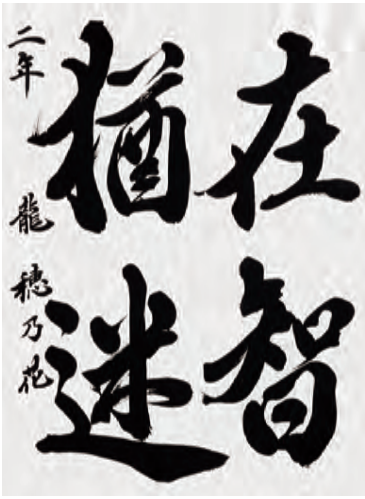 在智
猶迷
二年 龍 穂乃花